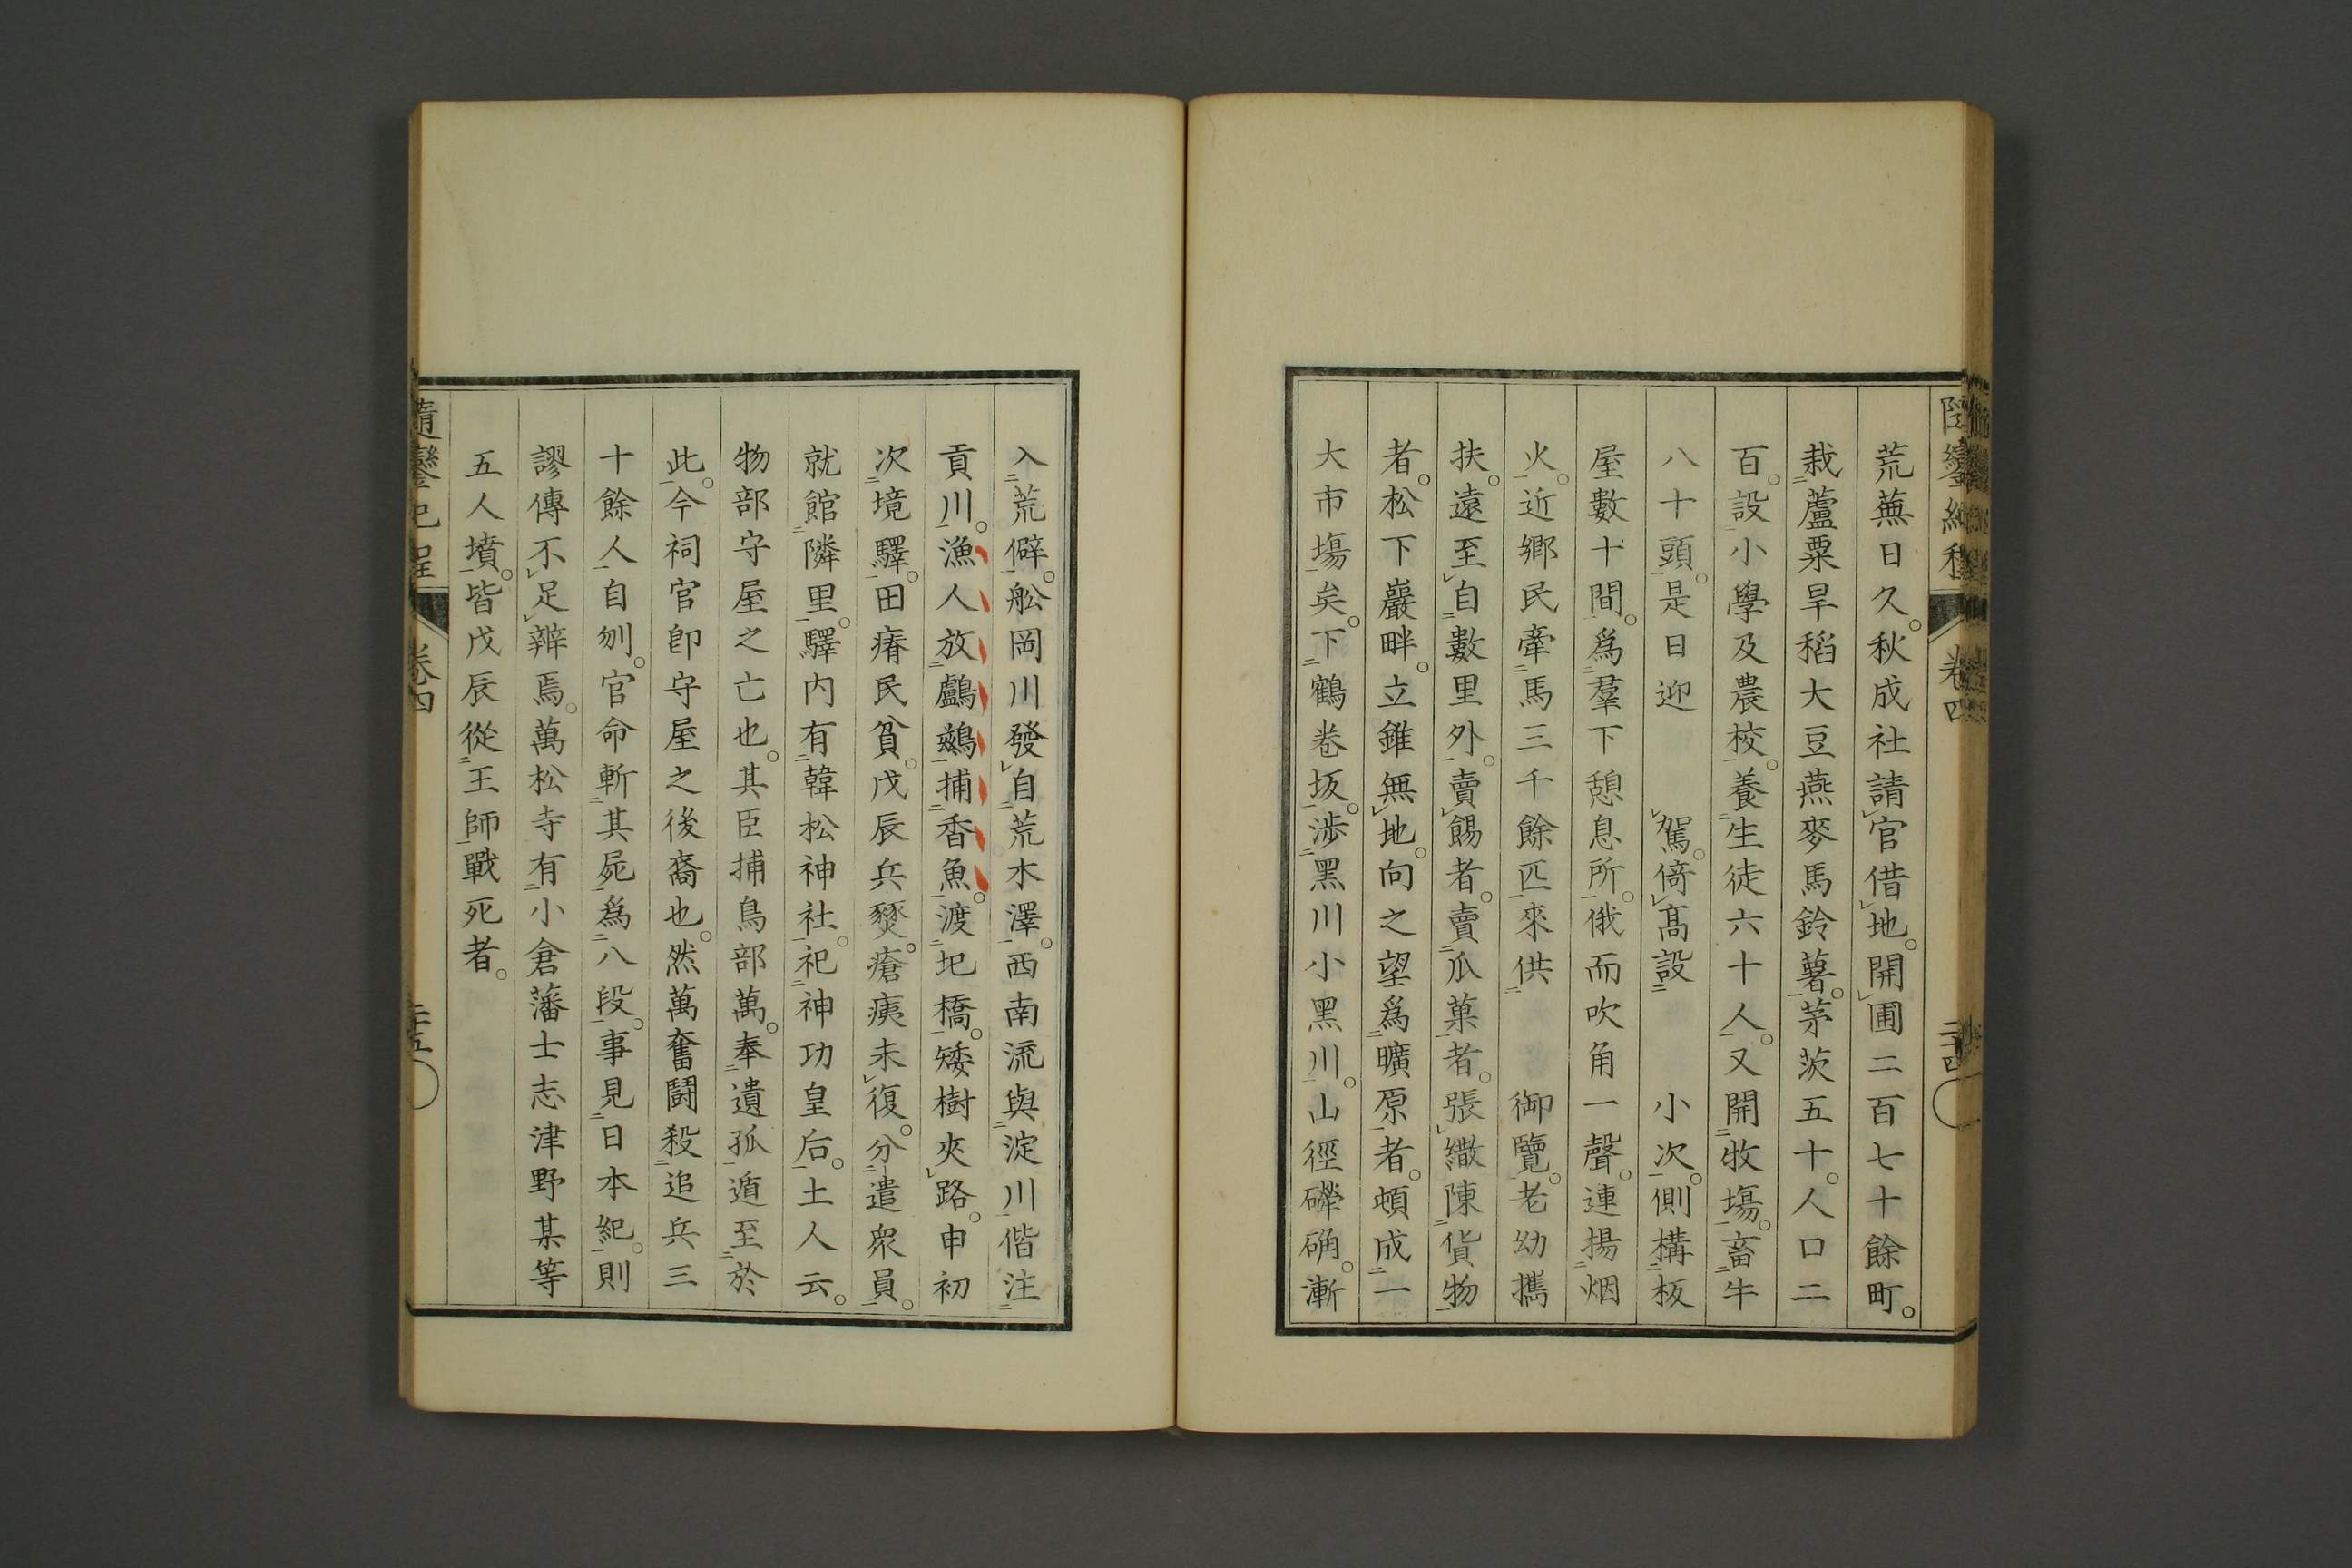 荒蕪日久。秋成社請官借地。開圃二百七十餘町。
栽蘆粟旱稻大豆燕麥馬鈴薯。茅茨五十。人口二
百。設小學及農校。養生徒六十人。又開牧塲。畜牛
八十頭。是日迎駕。倚高設小次。側構板
屋數十間。爲羣下憩息所。俄而吹角一聲。連揚烟
火。近鄉民牽馬三千餘匹來供御覽。老幼攜
扶。遠至自數里外。賣餳者。賣瓜菓者。張繖陳貨物
者。松下巖畔。立錐無地。向之望爲曠原者。頓成一
大市塲矣。下鶴卷坂。涉黑川小黑川。山徑礫确。漸
入荒僻。舩岡川發自荒木澤。西南流與淀川偕注
貢川。漁人放鸕鷀捕香魚。渡圯橋。矮樹夾路。申初
次境驛。田瘠民貧。戊辰兵燹。瘡痍未復。分遣衆員。
就館隣里。驛内有韓松神社。祀神功皇后。土人云。
物部守屋之亡也。其臣捕鳥部萬。奉遺孤遁至於
此。今祠官卽守屋之後裔也。然萬奮鬪殺追兵三
十餘人自刎。官命斬其屍爲八段。事見日本紀。則
謬傳不足辯焉。萬松寺有小倉藩士志津野某等
五人墳。皆戊辰從王師戰死者。
隨鑾紀程 卷四 二十五
卷四 二十四